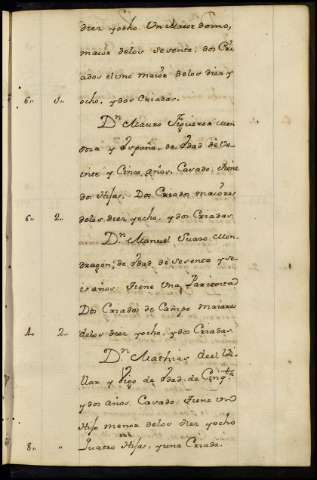 diez yocho. Un Maior Domo,
maior delos sesenta; dos Cri
ados el uno maior delos diez y
6,, 0,, ocho, y dos Criadas.
Dn. Mauro Figueroa Men
doza y España, de Edad de se
nta y Cinco años, Casado, tiene
dos Hijas, Dos Criados maiores
6,, 2,, delos diez yocho, y dos Criadas
Dn. Manuel Suazo Mon
dragon, de Edad de sesenta y se
años. tiene Una Parienta
Dos Criados de Campo maiores
4,, 2,, delos diez yocho, y dos Criadas
Dn. Mathias del Vi
llar y Vigo de Edad de Cinqta.
y dos años, Casado, tiene un
Hijo menor delos diez yocho
8,, ,, Quatro Hijas, y una Criada.